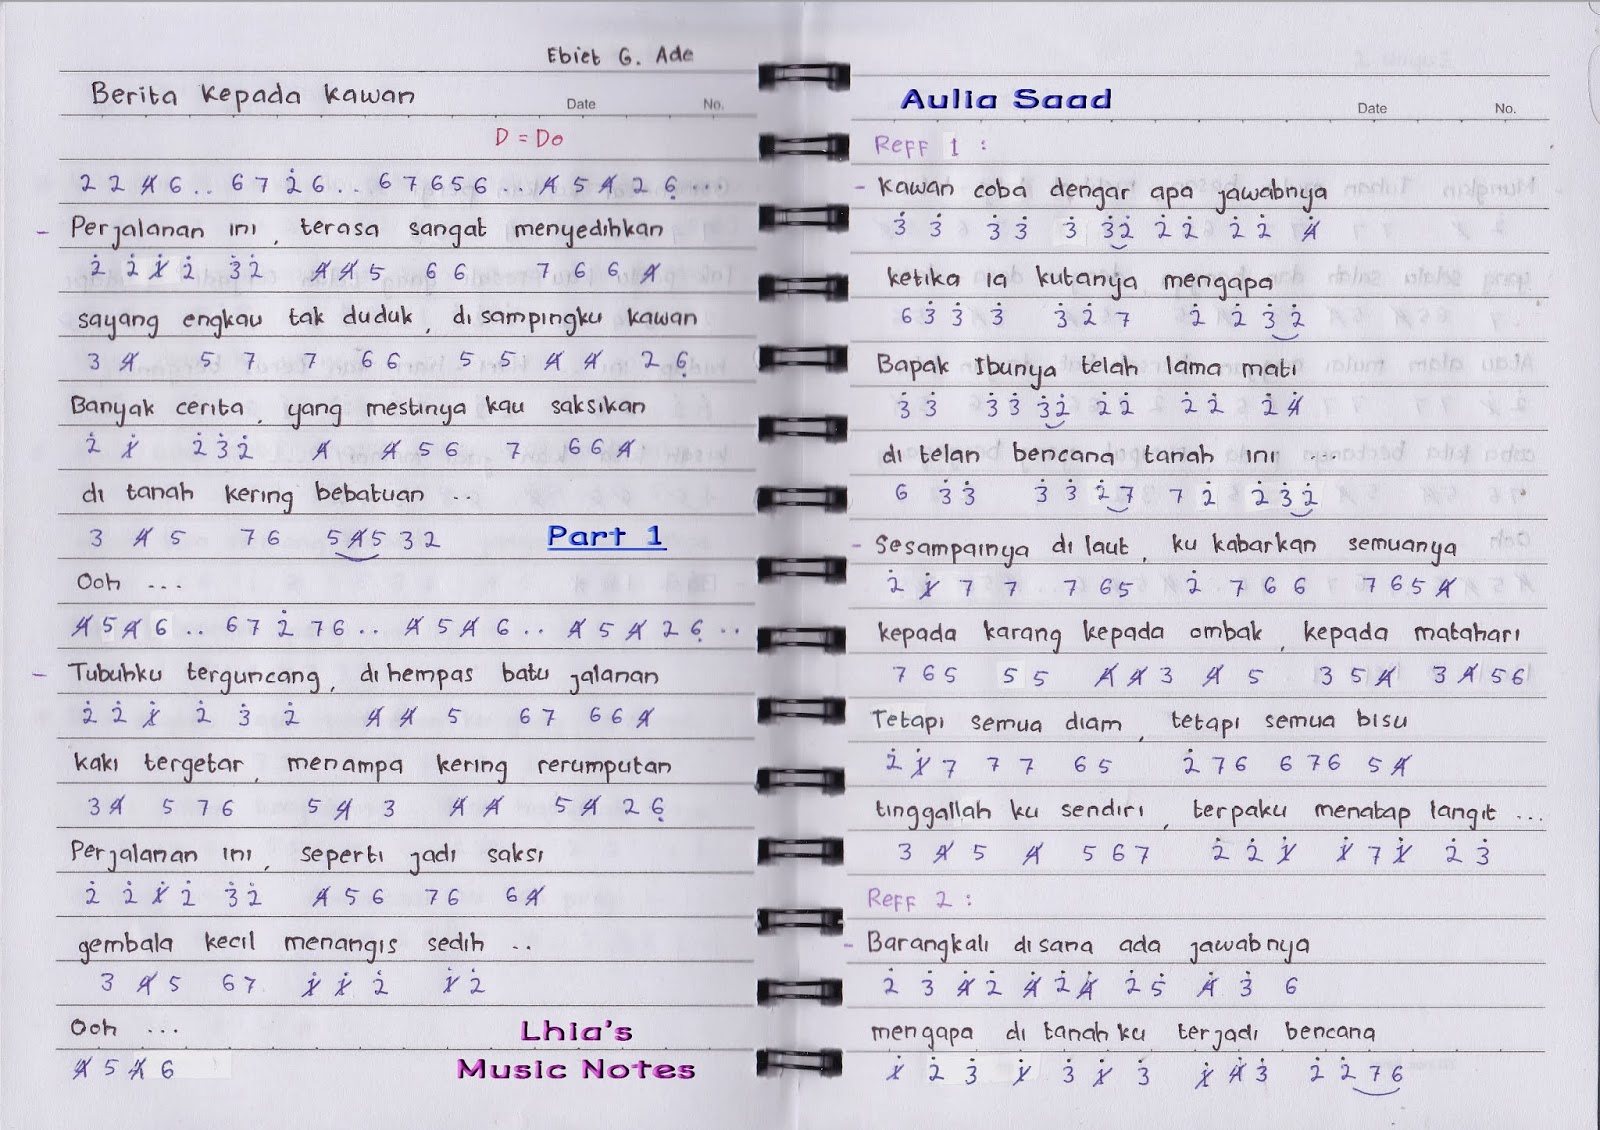 Ebiet G. Ade
Berita Kepada Kawan
Date No.
D = Do
2 2 4̸ 6 .. 6 7 2̇ 6 .. 6 7 6 5 6 ... 4̸ 5 4̸ 2 6̣ ...
- Perjalanan ini, terasa sangat menyedihkan
2̇ 2̇ 1̸̇ 2̇ 3̇ 2̇ 4̸ 4̸ 5 6 6 7 6 6 4̸
sayang engkau tak duduk, di sampingku kawan
3 4̸ 5 7 7 6 6 5 5 4̸ 4̸ 2 6̣
Banyak cerita, yang mestinya kau saksikan
2̇ 1̸̇ 2̇ 3̇ 2̇ 4̸ 4̸ 5 6 7 6 6 4̸
di tanah kering bebatuan ..
3 4̸ 5 7 6 5 4̸ 5 3 2
Part 1
Ooh ...
4̸ 5 4̸ 6 .. 6 7 2̇ 7 6 .. 4̸ 5 4̸ 6 .. 4̸ 5 4̸ 2 6̣ ..
- Tubuhku terguncang, di hempas batu jalanan
2̇ 2̇ 1̸̇ 2̇ 3̇ 2̇ 4̸ 4̸ 5 6 7 6 6 4̸
kaki tergetar, menampa kering rerumputan
3 4̸ 5 7 6 5 4̸ 3 4̸ 4̸ 5 4̸ 2 6̣
Perjalanan ini, seperti jadi saksi
2̇ 2̇ 1̸̇ 2̇ 3̇ 2̇ 4̸ 5 6 7 6 6 4̸
gembala kecil menangis sedih ..
3 4̸ 5 6 7 1̸̇ 1̸̇ 2̇ 1̸̇ 2̇
Ooh ...
4̸ 5 4̸ 6
Lhia's
Music Notes
Aulia Saad
Date No.
Reff 1 :
- Kawan coba dengar apa jawabnya
3̇ 3̇ 3̇ 3̇ 3̇ 3̇ 2̇ 2̇ 2̇ 2̇ 2̇ 4̸̇
ketika ia kutanya mengapa
6 3̇ 3̇ 3̇ 3̇ 2̇ 7 2̇ 2̇ 3̇ 2̇
Bapak Ibunya telah lama mati
3̇ 3̇ 3̇ 3̇ 3̇ 2̇ 2̇ 2̇ 2̇ 2̇ 2̇ 4̸̇
di telan bencana tanah ini ...
6 3̇ 3̇ 3̇ 3̇ 2̇ 7 7 2̇ 2̇ 3̇ 2̇
- Sesampainya di laut, ku kabarkan semuanya
2̇ 1̸̇ 7 7 7 6 5 2̇ 7 6 6 7 6 5 4̸
kepada karang kepada ombak, kepada matahari
7 6 5 5 5 4̸ 4̸ 3 4̸ 5 3 5 4̸ 3 4̸ 5 6
Tetapi semua diam, tetapi semua bisu
2̇ 1̸̇ 7 7 7 6 5 2̇ 7 6 6 7 6 5 4̸
tinggallah ku sendiri, terpaku menatap langit ...
3 4̸ 5 4̸ 5 6 7 2̇ 2̇ 1̸̇ 1̸̇ 7 1̸̇ 2̇ 3̇
Reff 2 :
- Barangkali disana ada jawabnya
2̇ 3̇ 4̸̇ 2̇ 4̸̇ 2̇ 4̸̇ 2̇ 5̇ 4̸̇ 3̇ 6
mengapa di tanah ku terjadi bencana
1̸̇ 2̇ 3̇ 1̸̇ 3̇ 1̸̇ 3̇ 1̸̇ 4̸̇ 3̇ 2̇ 2̇ 7 6